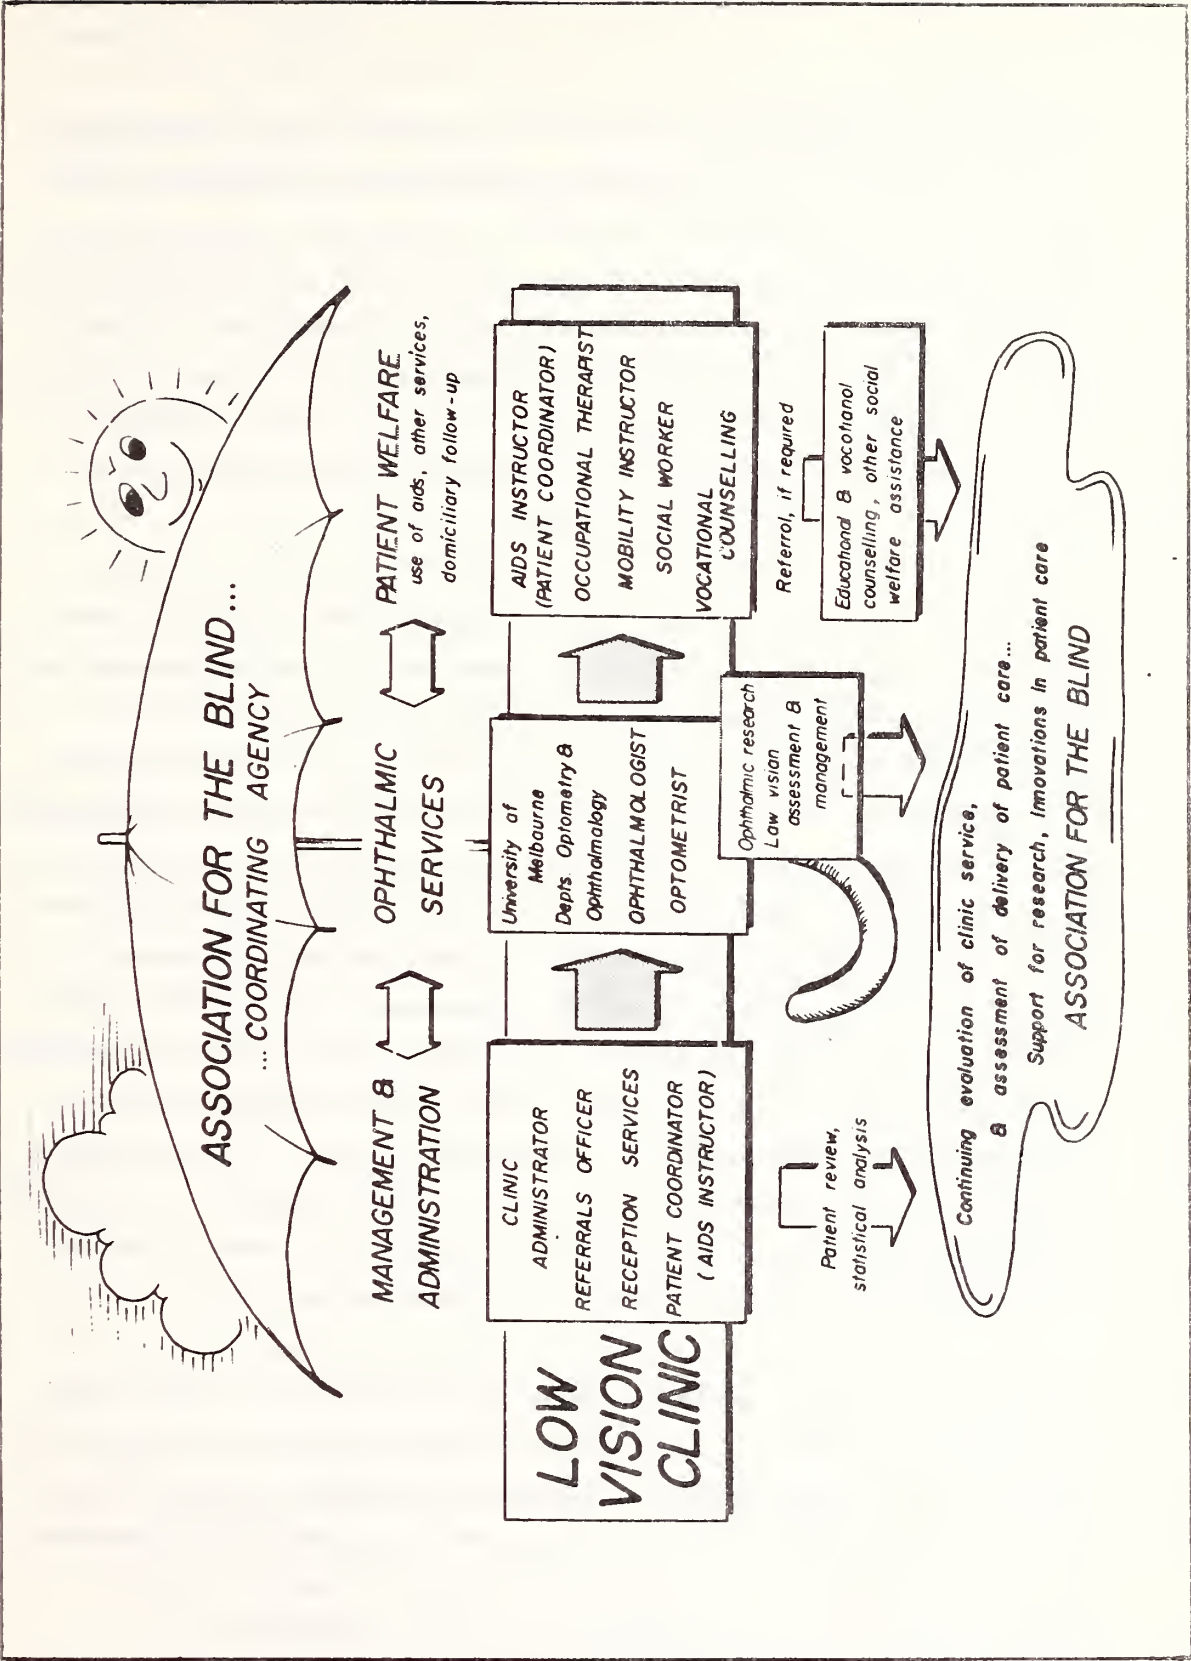 ASSOCIATION FOR THE BLIND...
... COORDINATING AGENCY
MANAGEMENT &
ADMINISTRATION
OPHTHALMIC
SERVICES
PATIENT WELFARE
use of aids, other services,
domiciliary follow-up
LOW
VISION
CLINIC
CLINIC
ADMINISTRATOR
REFERRALS OFFICER
RECEPTION SERVICES
PATIENT COORDINATOR
(AIDS INSTRUCTOR)
University of
Melbourne
Depts. Optometry &
Ophthalmology
OPHTHALMOLOGIST
OPTOMETRIST
AIDS INSTRUCTOR
(PATIENT COORDINATOR)
OCCUPATIONAL THERAPIST
MOBILITY INSTRUCTOR
SOCIAL WORKER
VOCATIONAL
COUNSELLING
Patient review,
statistical analysis
Ophthalmic research
Low vision
assessment &
management
Referral, if required
Educational & vocational
counselling, other social
welfare assistance
Continuing evaluation of clinic service,
& assessment of delivery of patient care...
Support for research, Innovations in patient care
ASSOCIATION FOR THE BLIND